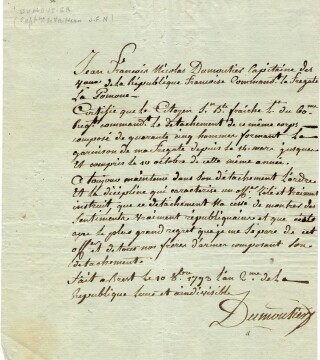 Jean François Nicolas Dumoutier Capitaine des
Vaux de la République Françoise Commandt la Fregate
La Pomone
Certifie que le Citoyen Lt du
Regt commandt le détachement de ce même corps
composé de quarante cinq hommes formant la
garnison de ma fregate depuis le 14 mars jusques
et compris le 10 octobre de cette même année.
A toujours maintenu dans son détachement l'ordre
et la discipline qui caractérise un offier zélé et vraiment
instruit, que ce détachement Na cessé de montrer des
Sentiments vraiment républicains et que c'est
avec le plus grand regret que je me sépare de cet
offier et de tous nos freres d'armes composant son
détachement.
Fait a Brest le 10 8bre 1793 l'an 2me de la
Republique Une et indivisible
Dumoutier